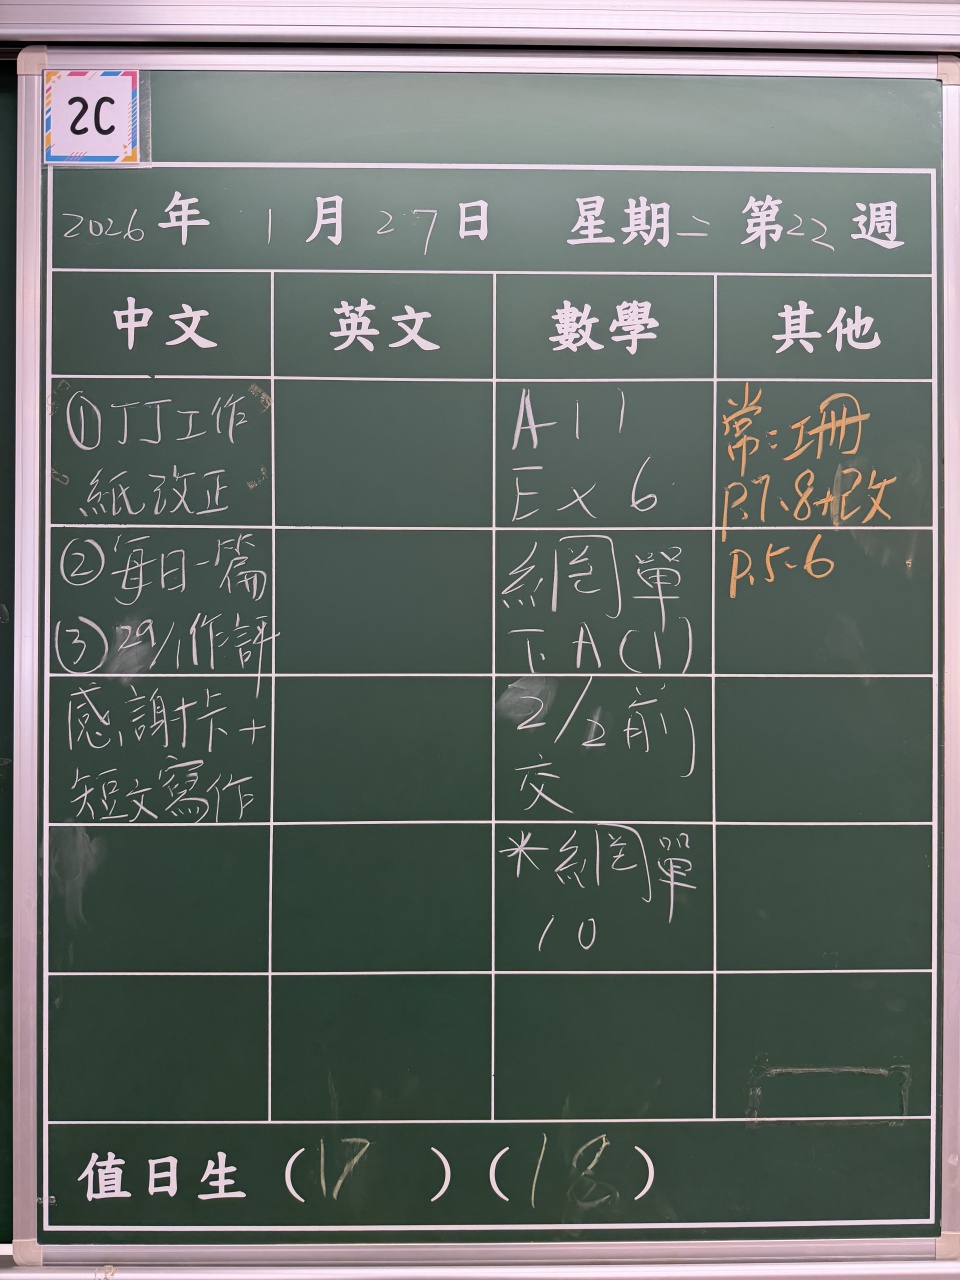 2C
2026年 1月27日 星期二 第22週
中文
英文
數學
其他
①丁丁工作
紙改正
②每日一篇
③29/1作評
感謝卡+
短文寫作
A11
Ex 6
網單
下A(1)
2/2前
交
*網單
10
常:工冊
P.7、8+改
P.5、6
值日生(17)(18)